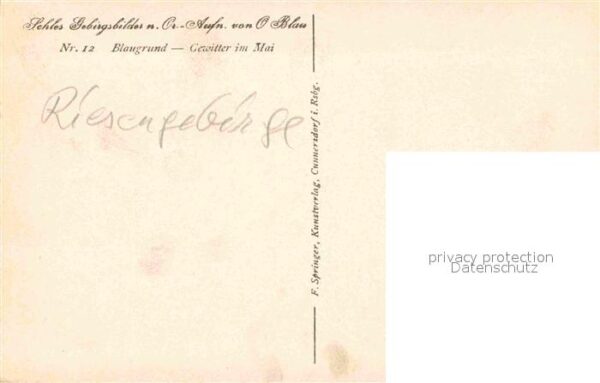 Schles Gebirgsbilder n. Or.-Aufn. von O Blau
Nr. 12 Blaugrund — Gewitter im Mai
Riesengebirge
F. Springer, Kunstverlag, Cunnersdorf i. Rsbg.
privacy protection
Datenschutz